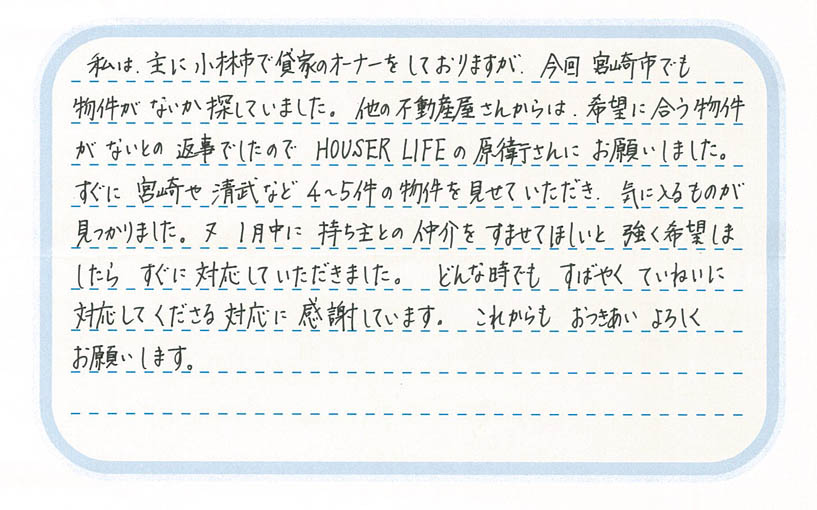 私は、主に小林市で貸家のオーナーをしておりますが、今回 宮崎市でも
物件がないか探していました。他の不動産屋さんからは、希望に合う物件
がないとの返事でしたので HOUSER LIFEの原衛さんに お願いしました。
すぐに 宮崎や清武など 4~5件の物件を見せていただき、気に入るものが
見つかりました。又 1月中に 持ち主との仲介を すませてほしいと 強く希望しま
したら すぐに対応していただきました。 どんな時でも すばやく ていねいに
対応してくださる対応に 感謝しています。 これからも おつきあい よろしく
お願いします。